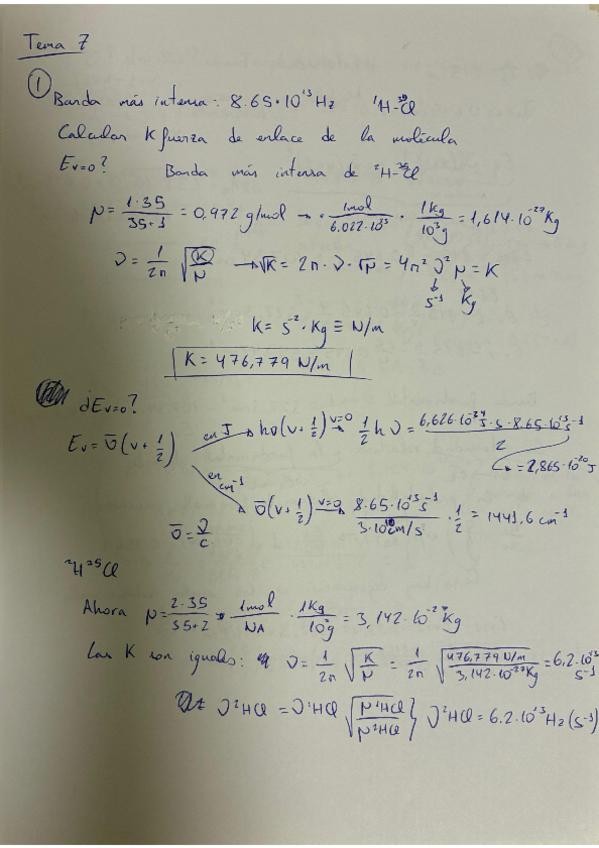 Tema 7
① Banda más intensa: 8.65·10¹³Hz ¹H-³⁵Cl
Calcular K fuerza de enlace de la molécula
Ev=0? Banda más intensa de ²H-³⁵Cl
μ = 1·35 / 35+1 = 0,972 g/mol → · 1mol / 6.022·10²³ · 1Kg / 10³g = 1,614·10⁻²⁷Kg
ν = 1/2π √(K/μ) → √K = 2π·ν·√μ = 4π² ν² μ = K
s⁻¹ Kg
K = s⁻²·Kg ≡ N/m
K = 476,779 N/m
¿Ev=0?
Ev = ν̄(v + 1/2) en J → hν(v + 1/2) v=0 → 1/2 hν = 6,626·10⁻³⁴ J·s·8.65·10¹³ s⁻¹ / 2
= 2,865·10⁻²⁰ J
en cm⁻¹ → ν̄(v + 1/2) v=0 → 8.65·10¹³s⁻¹ / 3·10¹⁰cm/s · 1/2 = 1441,6 cm⁻¹
ν̄ = ν/c
²H³⁵Cl
Ahora μ = 2·35 / 35+2 · 1mol / NA · 1Kg / 10³g = 3,142·10⁻²⁷Kg
Las K son iguales: ν = 1/2π √(K/μ) = 1/2π √(476,779 N/m / 3,142·10⁻²⁷Kg) = 6,2·10¹³ s⁻¹
ν²HCl = ν¹HCl √(μ¹HCl / μ²HCl) } ν²HCl = 6.2·10¹³Hz (s⁻¹)